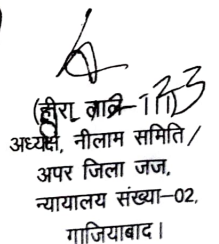 (हीरा लाल-II)
अध्यक्ष, नीलाम समिति/
अपर जिला जज,
न्यायालय संख्या-02,
गाजियाबाद।